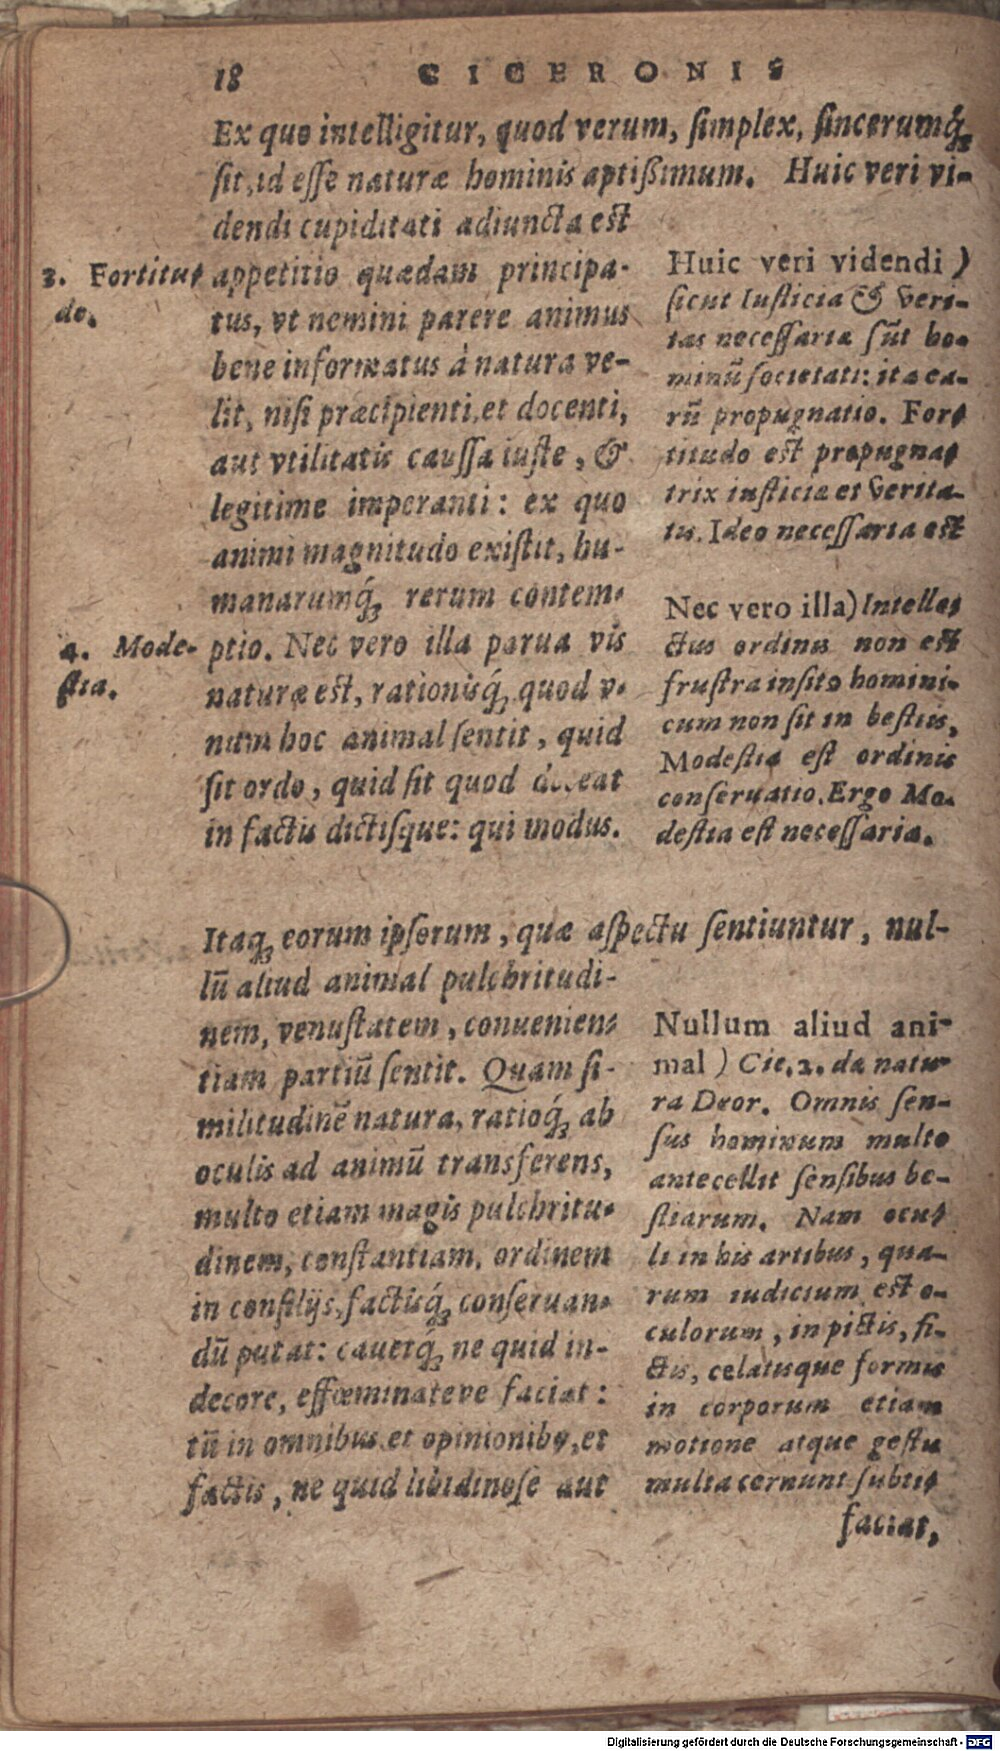 18 CICERONIS
Ex quo intelligitur, quod verum, simplex, sincerumq́ꝫ
sit, id esse naturæ hominis aptißimum. Huic veri vi-
dendi cupiditati adiuncta est
appetitio quædam principa-
tus, vt nemini parere animus
bene informatus à natura ve-
lit, nisi præcipienti, et docenti,
aut vtilitatis caussa iuste, &
legitime imperanti: ex quo
animi magnitudo existit, hu-
manarumq́ꝫ rerum contem-
ptio. Nec vero illa parua vis
naturæ est, rationisq́ꝫ quod v-
num hoc animal sentit, quid
sit ordo, quid sit quod deceat
in factis dictisque: qui modus.
3. Fortitu-
do.
4. Mode-
stia.
Huic veri videndi )
sicut Iusticia & Veri-
tas necessaria sūt ho-
minū societati: ita ea-
rū propugnatio. For-
titudo est propugna-
trix iusticiæ et Verita-
tis. Ideo necessaria est
Nec vero illa) Intelle-
ctus ordinis non est
frustra insito homini-
cum non sit in bestiis,
Modestia est ordinis
conseruatio. Ergo Mo-
destia est necessaria.
Itaqꝫ eorum ipsorum, quæ aspectu sentiuntur, nul-
lū aliud animal pulchritudi-
nem, venustatem, conuenien-
tiam partiū sentit. Quam si-
militudinē natura, ratioq́ꝫ ab
oculis ad animū transferens,
multo etiam magis pulchritu-
dinem, constantiam, ordinem
in consilijs, factisq́ꝫ conseruan-
dū putat: cauetq́ꝫ ne quid in-
decore, effœminateve faciat:
tū in omnibus et opinionibꝰ, et
factis, ne quid libidinose aut
Nullum aliud ani-
mal ) Cic. 2. de natu-
ra Deor. Omnis sen-
sus hominum multo
antecellit sensibus be-
stiarum. Nam ocu-
li in his artibus, qua-
rum iudicium est o-
culorum, in pictis, fi-
ctis, celatisque formis
in corporum etiam
motione atque gestu
multa cernunt subti-
faciat,
Digitalisierung gefördert durch die Deutsche Forschungsgemeinschaft - DFG